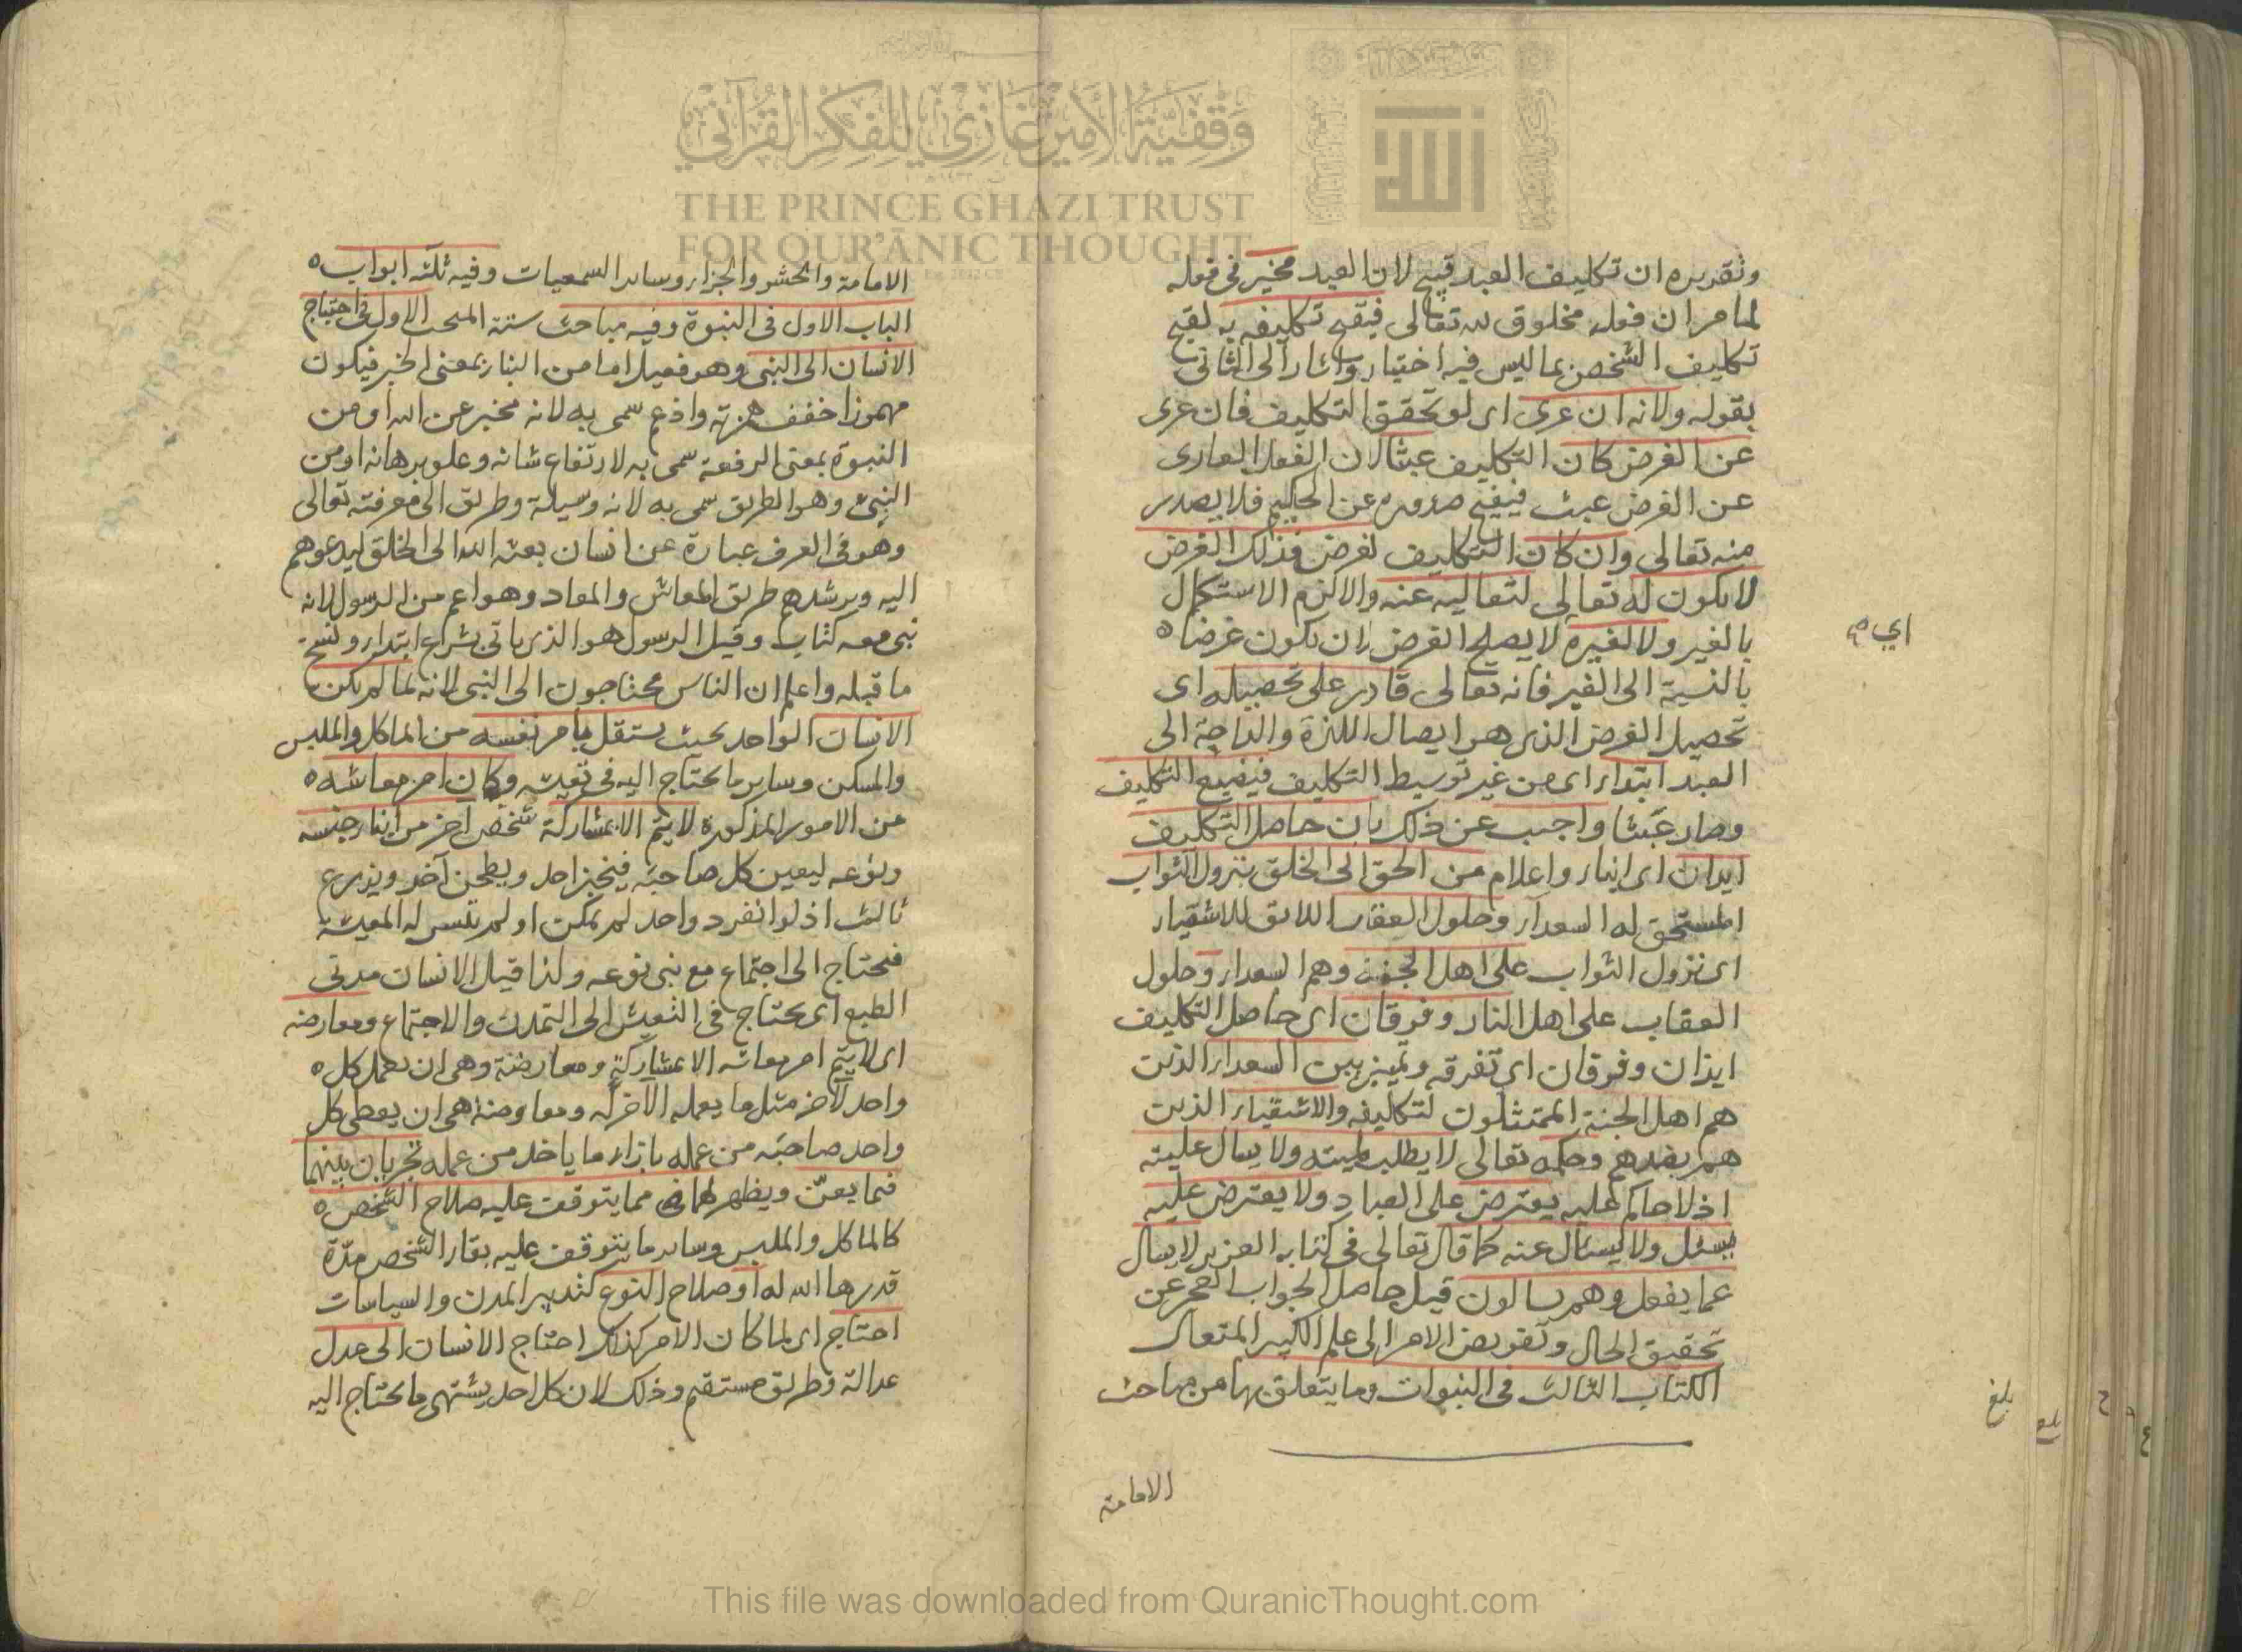 وقفية الأمير غازي للفكر القرآني
THE PRINCE GHAZI TRUST
FOR QUR'ĀNIC THOUGHT
الله
وتقريره ان تكليف العبد قبيح لان العبد مخير في فعله
لما مر ان فعله مخلوق لله تعالى فيقبح تكليفه به لقبح
تكليف الشخص بما ليس فيه اختيار واشار الى الثاني
بقوله ولانه ان عرى اى لو تحقق التكليف فان عرى
عن الغرض كان التكليف عبثا لان الفعل العارى
عن الغرض عبث فيقبح صدوره عن الحكيم فلا يصدر
منه تعالى وان كان التكليف لغرض فذلك الغرض
لا يكون له تعالى لتعاليه عنه والا لزم الاستكمال
بالغير ولا لغيره لا يصلح الغرض ان يكون غرضا
اي
بالنسبة الى الغير فانه تعالى قادر على تحصيله اى
تحصيل الغرض الذى هو ايصال اللذة والراحة الى
العبد ابتداء اى من غير توسيط التكليف فيضيع التكليف
وصار عبثا واجيب عن ذلك بان حاصل التكليف
ايذان اى انباء واعلام من الحق الى الخلق بنزول الثواب
المستحق له السعداء وحلول العقاب اللائق للاشقياء
اى نزول الثواب على اهل الجنة وهم السعداء وحلول
العقاب على اهل النار وفرقان اى حاصل التكليف
ايذان وفرقان اى تفرقه وتميز بين السعداء الذين
هم اهل الجنة الممتثلون لتكاليفه والاشقياء الذين
هم بضدهم وحكمه تعالى لا يطلب لميته ولا يسال عليته
اذ لا حاكم عليه يعترض على العباد ولا يعترض عليه
يسئل ولا يسئال عنه كما قال تعالى في كتابه العزيز لا يسال
عما يفعل وهم يسالون قيل حاصل الجواب العجز عن
تحقيق الحال وتفويض الامر الى علم الكبير المتعال
الكتاب الثالث في النبوات وما يتعلق بها من مباحث
الامامة
بلغ
الامامة والحشر والجزاء وساير السمعيات وفيه ثلثه ابواب
الباب الاول في النبوة وفيه مباحث ستة المبحث الاول في احتياج
الانسان الى النبي وهو فعيل اما من النباء بمعنى الخبر فيكون
مهموزا خفف همزته وادغم سمى به لانه مخبر عن الله او من
النبوة بمعنى الرفعة سمى به لارتفاع شانه وعلو برهانه او من
النبئ وهو الطريق سمى به لانه وسيلة وطريق الى معرفته تعالى
وهو في العرف عبارة عن انسان بعثه الله الى الخلق ليدعوهم
اليه ويرشدهم طريق المعاش والمعاد وهو اعم من الرسول لانه
نبي معه كتاب وقيل الرسول هو الذى ياتي بشرع ابتداء وينسخ
ما قبله واعلم ان الناس محتاجون الى النبي لانه لما لم يكن
الانسان الواحد بحيث يستقل بامر نفسه من الماكل والملبس
والمسكن وساير ما يحتاج اليه في تعيشه وكان امر معاشه
من الامور المذكورة لا يتم الا بمشاركة شخص اخر من ابناء جنسه
ونوعه ليعين كل صاحبه فيخبز احد ويطحن آخر ويزرع
ثالث اذ لو انفرد واحد لم يمكن او لم يتيسر له المعيشة
فيحتاج الى اجتماع مع بني نوعه ولذا قيل الانسان مدنى
الطبع اى يحتاج في التعيش الى التمدن والاجتماع ومعارضه
اى لا يتم امر معاشه الا بمشاركة ومعارضة وهى ان يعمل كل
واحد لآخر مثل ما يعمله الآخر له ومعاوضة هى ان يعطى كل
واحد صاحبه من عمله بازاء ما ياخذ من عمله تجريان بينهما
فيما يعنّ ويظهر لهما مما يتوقف عليه صلاح الشخص
كالماكل والملبس وساير ما يتوقف عليه بقاء الشخص مدّة
قدرها الله له او صلاح النوع كتدبير المدن والسياسات
احتاج اى لما كان الامر كذلك احتاج الانسان الى عدل
عدالة وطريق مستقيم وذلك لان كل احد يشتهى ما يحتاج اليه
This file was downloaded from QuranicThought.com